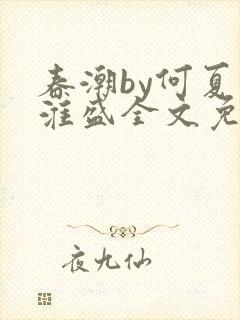 春潮by何夏
淮盛全文免
夜九仙